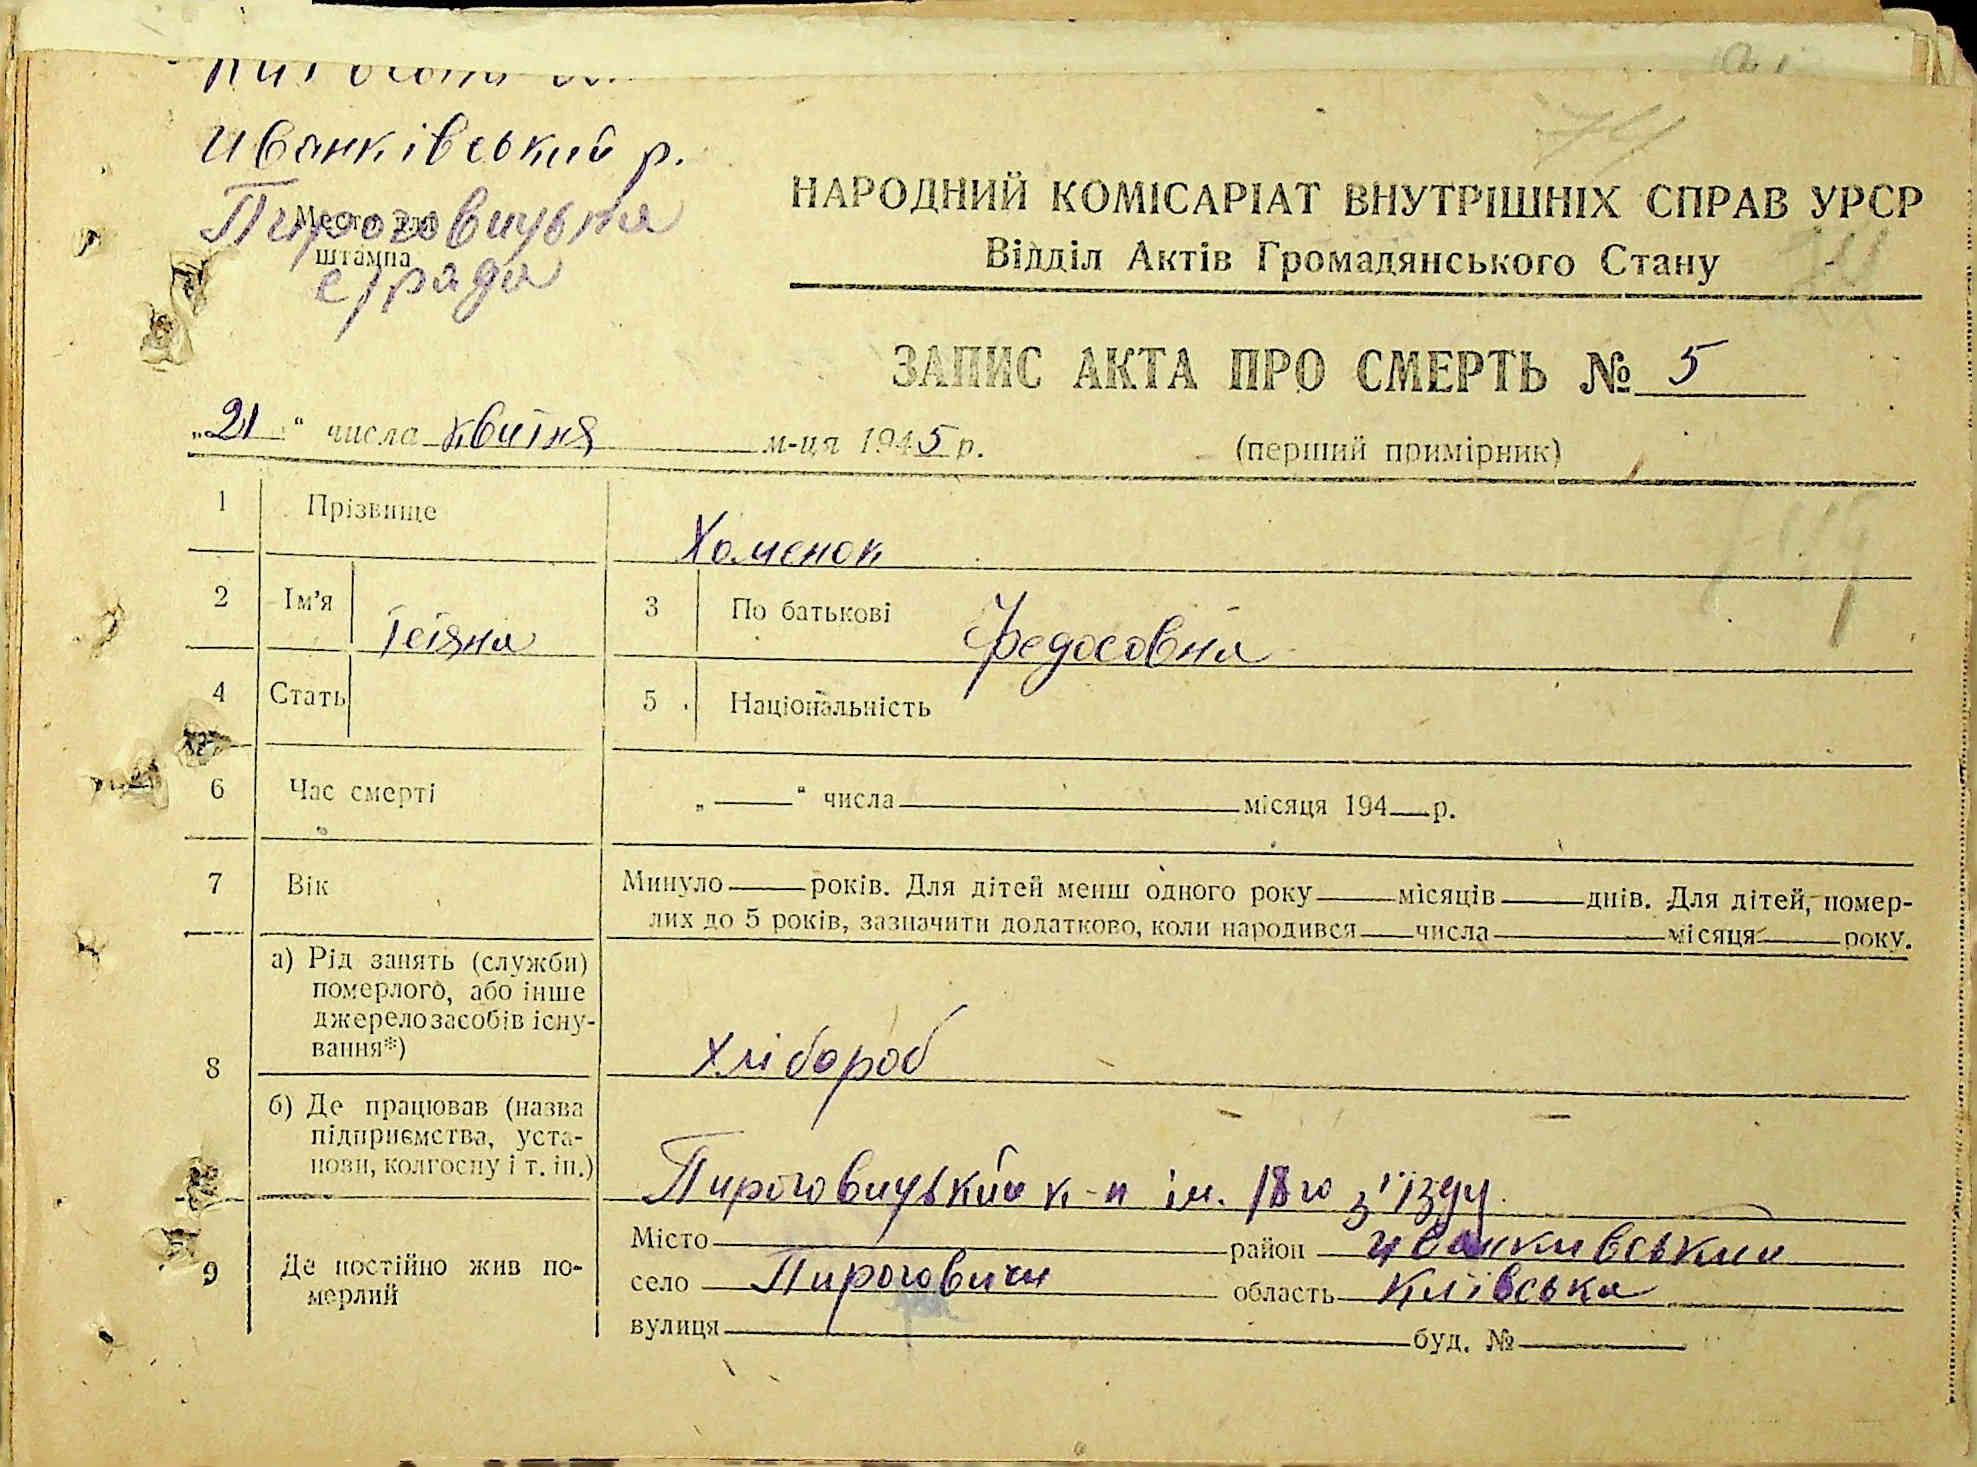 Иванківський р.
Место для
штампа
Пироговицька
с/рада
НАРОДНИЙ КОМІСАРІАТ ВНУТРІШНІХ СПРАВ УРСР
Відділ Актів Громадянського Стану
ЗАПИС АКТА ПРО СМЕРТЬ № 5
„21“ числа квитня м-ця 1945 р.
(перший примірник)
1 Прізвище Хоменок
2 Ім'я Тетяна 3 По батькові Федосовна
4 Стать 5 Національність
6 Час смерті „ “ числа місяця 194 р.
7 Вік Минуло років. Для дітей менш одного року місяців днів. Для дітей, помер-
лих до 5 років, зазначити додатково, коли народився числа місяця року.
8 а) Рід занять (служби)
померлого, або інше
джерело засобів існу-
вання*)
Хлібороб
б) Де працював (назва
підприємства, уста-
нови, колгоспу і т. ін.)
Пироговицький к-п ім. 18го з'їзду.
9 Де постійно жив по-
мерлий
Місто район Иванкивський
село Пироговичи область Київська
вулиця буд. №